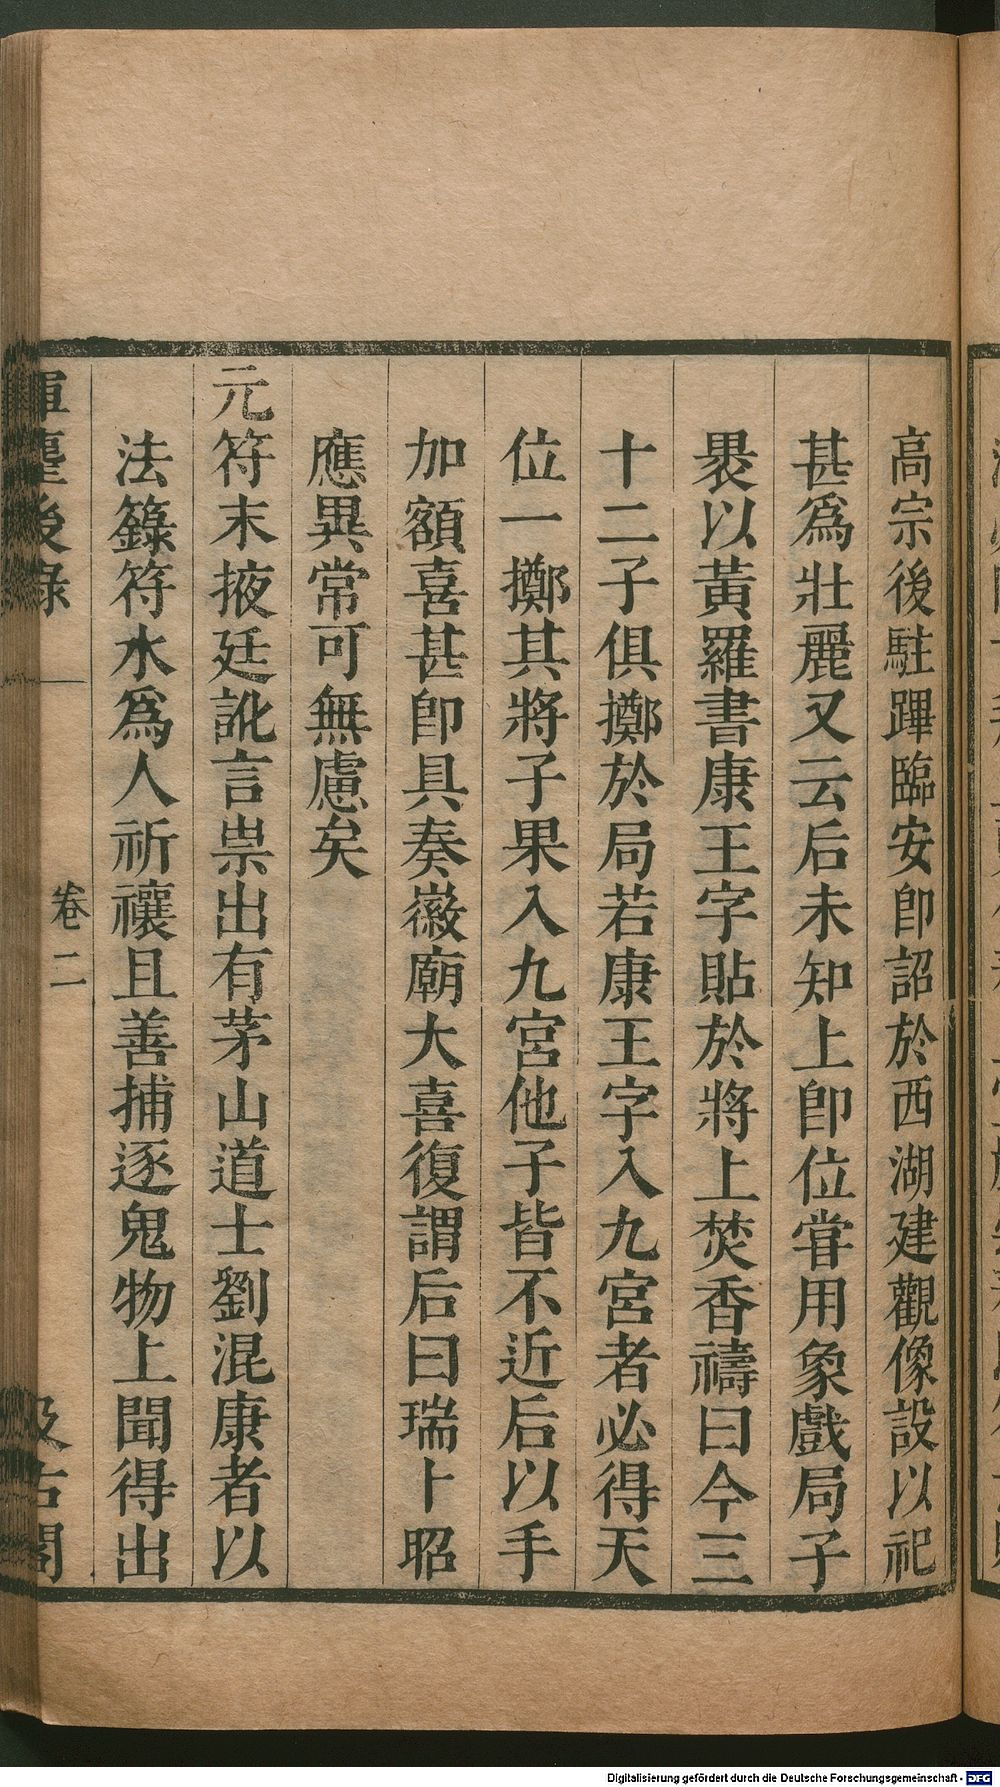 高宗後駐蹕臨安卽詔於西湖建觀像設以祀
甚爲壯麗又云后未知上卽位嘗用象戲局子
褁以黃羅書康王字貼於將上焚香禱曰今三
十二子俱擲於局若康王字入九宮者必得天
位一擲其將子果入九宮他子皆不近后以手
加額喜甚卽具奏徽廟大喜復謂后曰瑞卜昭
應異常可無慮矣
元符末掖廷訛言祟出有茅山道士劉混康者以
法籙符水爲人祈禳且善捕逐鬼物上聞得出
塵後錄
卷二
古閣
Digitalisierung gefördert durch die Deutsche Forschungsgemeinschaft - DFG